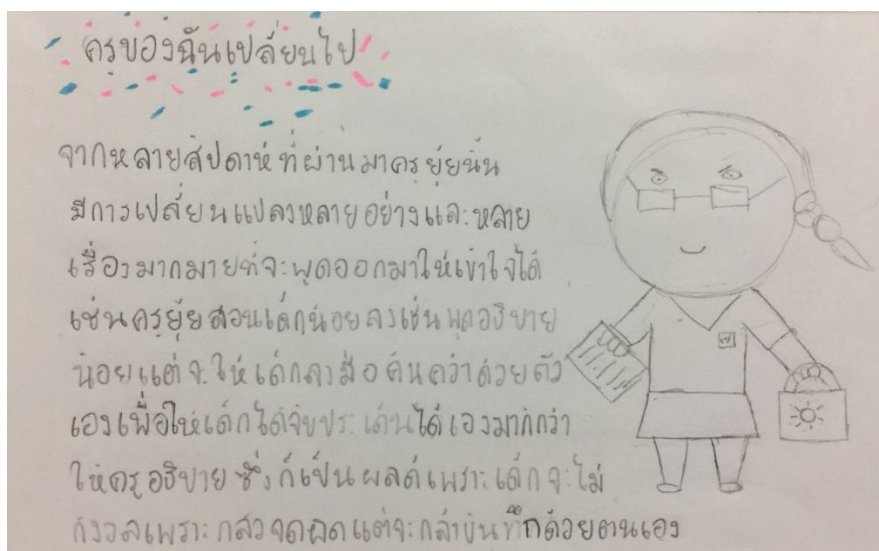 ครูของฉันเปลี่ยนไป
จากหลายสัปดาห์ที่ผ่านมาครูยุ้ยนั้น
มีการเปลี่ยนแปลงหลายอย่างและหลาย
เรื่องมากมายที่จะพูดออกมาให้เข้าใจได้
เช่นครูยุ้ยสอนเด็กน้อยลงเช่นพูดอธิบาย
น้อยแต่จะให้เด็กลงมือค้นคว้าด้วยตัว
เองเพื่อให้เด็กได้จับประเด็นได้เองมากกว่า
ให้ครูอธิบายซึ่งก็เป็นผลดีเพราะเด็กจะไม่
กังวลเพราะกลัวจดผิดแต่จะกล้าบันทึกด้วยตนเอง